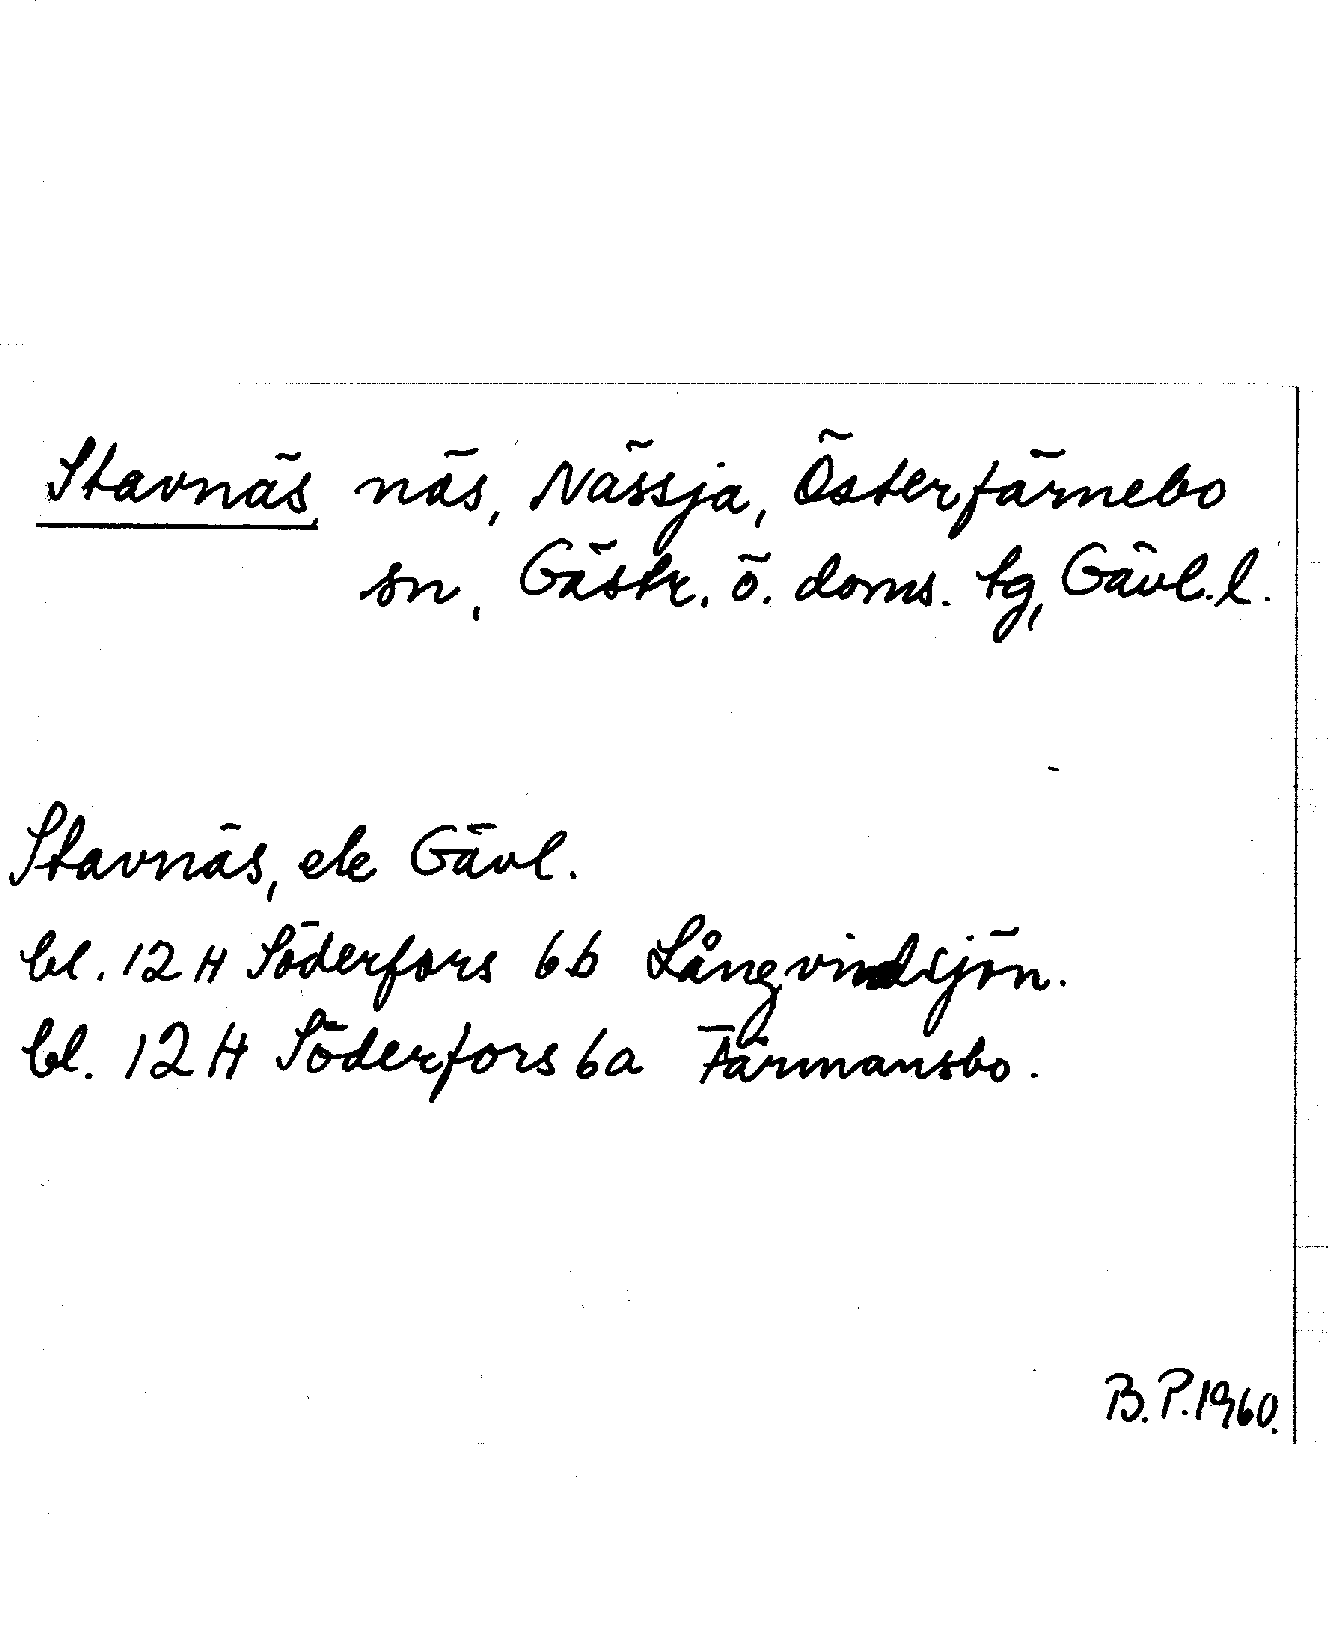 Stavnäs näs, Nässja, Österfärnebo
sn, Gästr. ö. doms. tg, Gävl. l.
Stavnäs, ek Gävl.
bl. 12 H Söderfors 6b Långvindsjön.
bl. 12 H Söderfors 6a Färmansbo.
B. P. 1960.